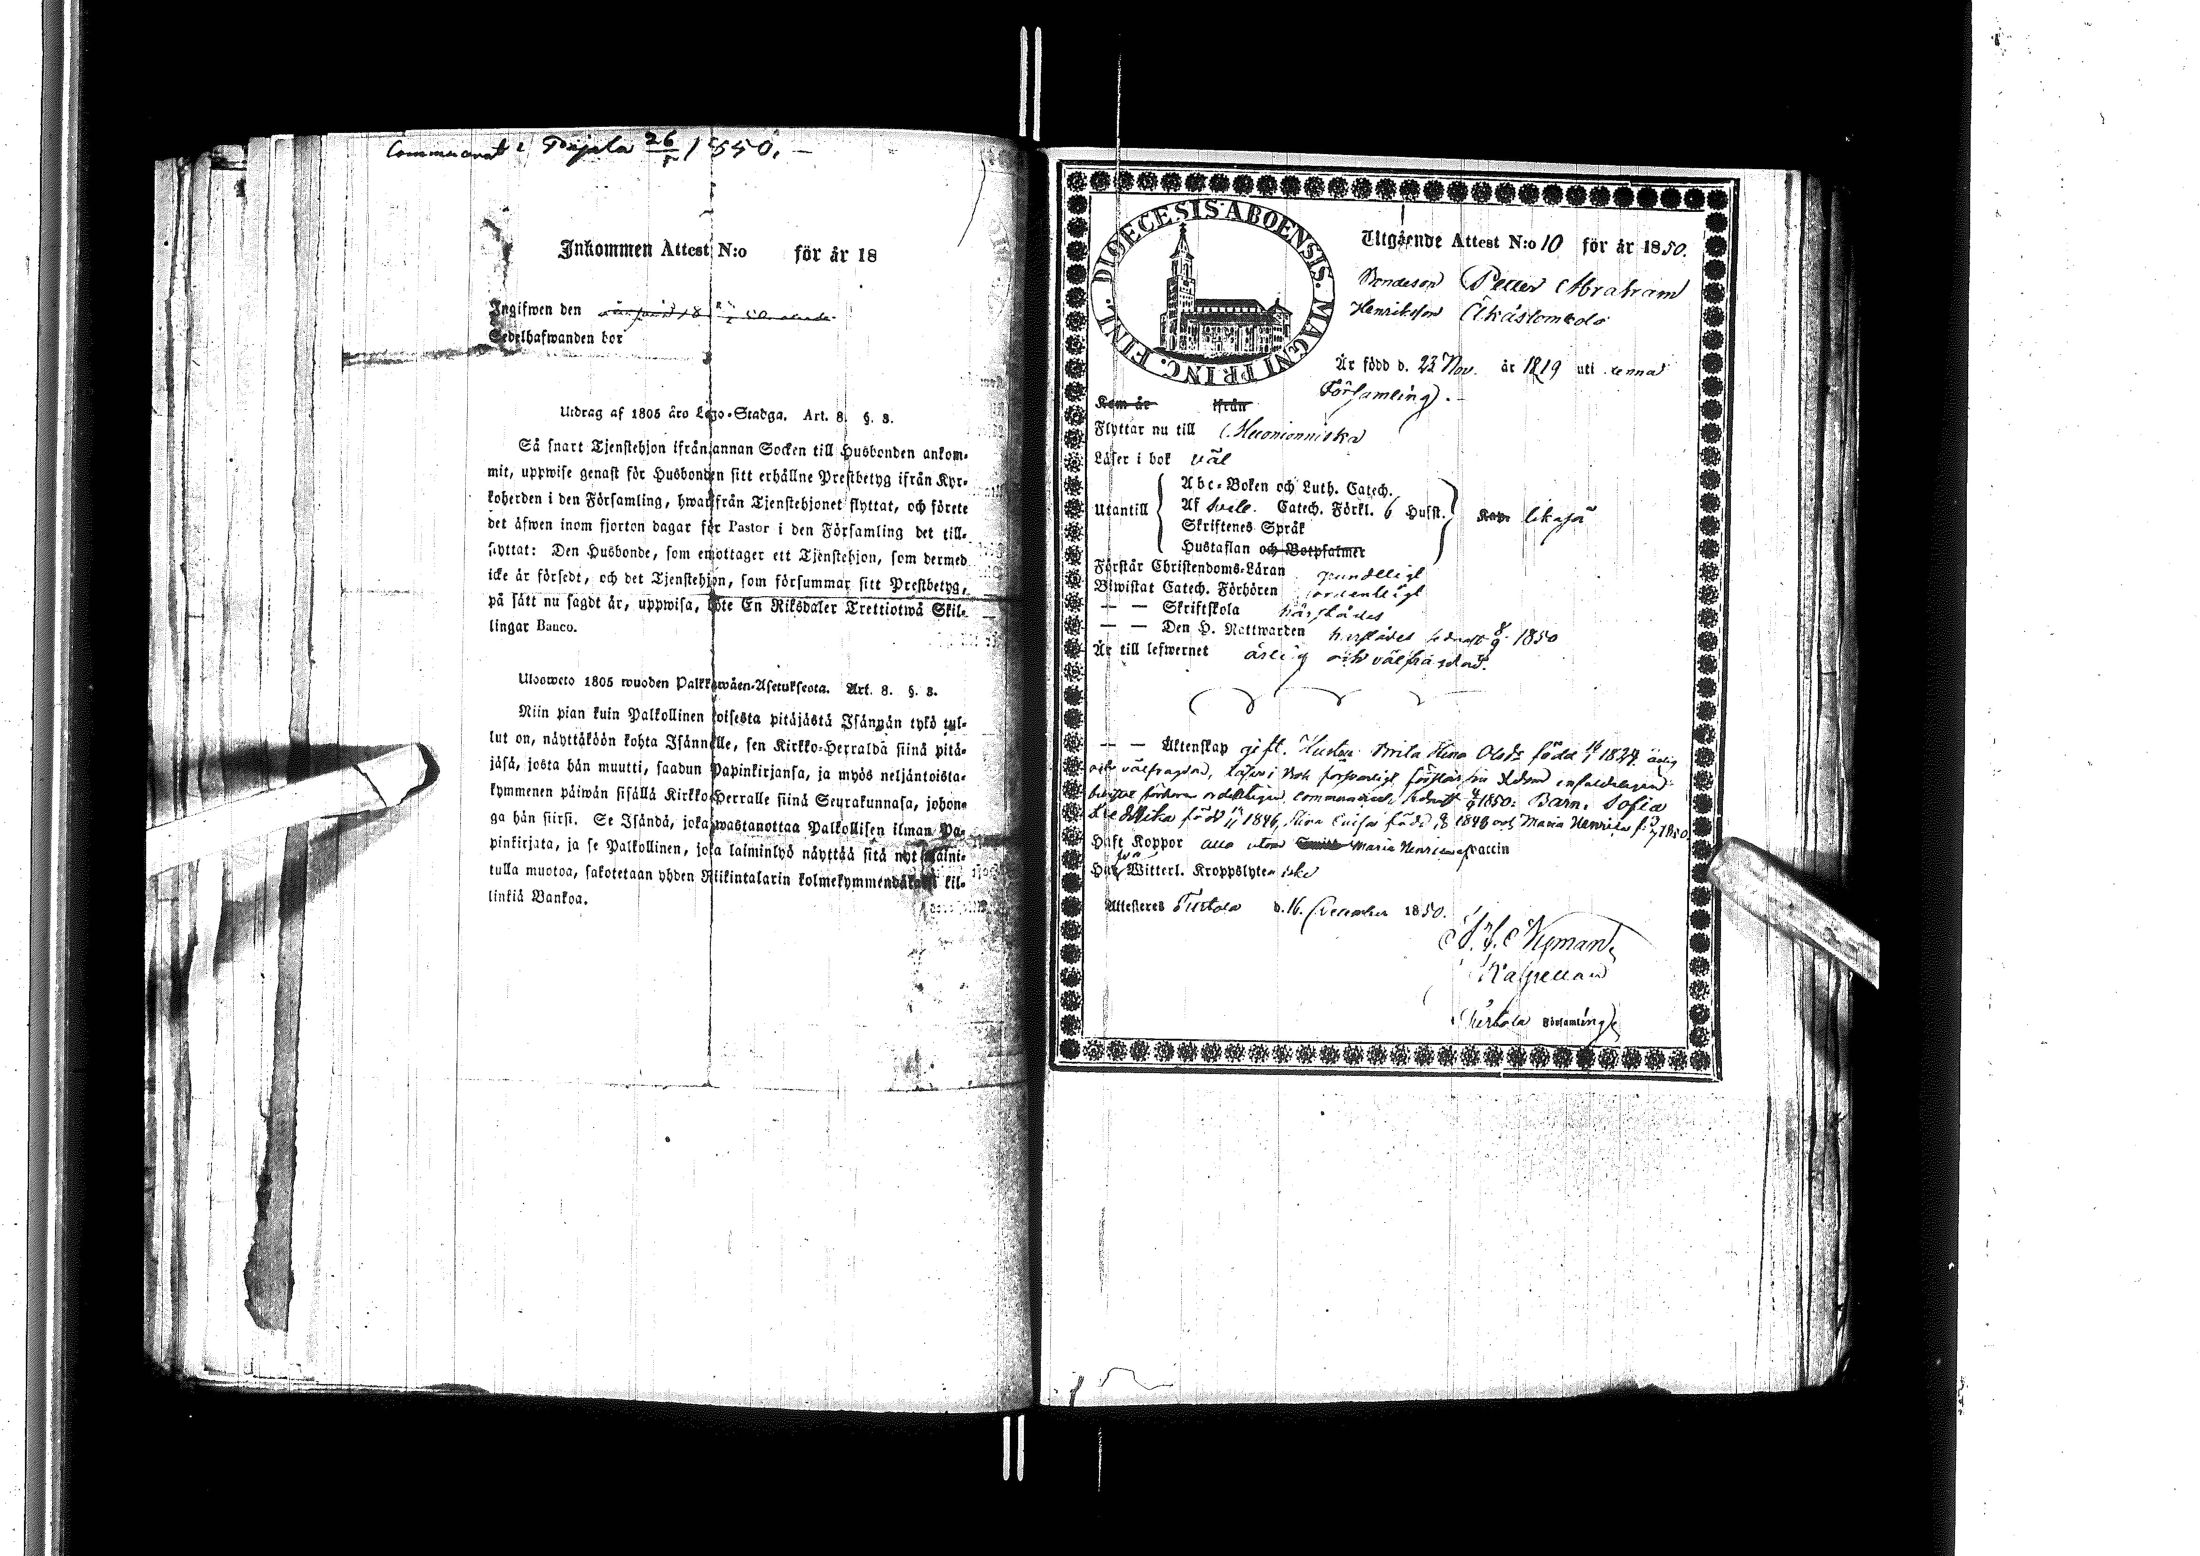 Communicerat i Pajala 26/5 1850.
Inkommen Attest N:o för år 18
Ingifwen den
Sedelhafwanden bor
Utdrag af 1805 års Lego-Stadga. Art. 8. §. 3.
Så snart Tjenstehjon ifrån annan Socken till Husbonden ankom-
mit, uppwise genast för Husbonden sitt erhållne Prestbetyg ifrån Kyr-
koherden i den Församling, hwarifrån Tjenstehjonet flyttat, och förete
det äfwen inom fjorton dagar för Pastor i den Församling det till-
flyttat: Den Husbonde, som emottager ett Tjenstehjon, som dermed
icke är försedt, och det Tjenstehjon, som försummar sitt Prestbetyg,
på sätt nu sagdt är, uppwisa, böte En Riksdaler Trettiotwå Skil-
lingar Banco.
Ulosweto 1805 wuoden Palkkawäen-Asetuksesta. Art. 8. §. 3.
Niin pian kuin Palkollinen toisesta pitäjästä Isännän tykö tul-
lut on, näyttäköön kohta Isännälle, sen Kirkko-Herralda siinä pitä-
jäsä, josta hän muutti, saadun Papinkirjansa, ja myös neljäntoista-
kymmenen päiwän sisällä Kirkko-Herralle siinä Seurakunnasa, johon-
ga hän siirsi. Se Isändä, joka wastanottaa Palkollisen ilman Pa-
pinkirjata, ja se Palkollinen, joka laiminlyö näyttää sitä nyt maini-
tulla muotoa, sakotetaan yhden Riikintalarin kolmekymmendäkaksi kil-
linkiä Bankoa.
DIOECESIS ABOENSIS. MAGNI PRINC. FINL.
Utgående Attest N:o 10 för år 1850.
Bondeson Petter Abraham
Henriksson Äkäslombolo
Är född d. 23 Nov. år 1819 uti denna
Församling.
Kom år ifrån
Flyttar nu till Muonionniska
Läser i bok väl
Abc-Boken och Luth. Catech.
Utantill Af Svele. Catech. Förkl. 6 Hufst. likaså
Skriftenes Språk
Hustaflan och Botpsalmer
Förstår Christendoms-Läran grundeligt
Biwistat Catech. Förhören ordentligt
— — Skriftskola härstädes
— — Den H. Nattwarden härstädes sednast 8/9 1850
Är till lefwernet ärlig och välfräjdad.
— — Äktenskap gift. Hustru Brita Stina Olofsd. född 1824. ärlig
och välfräjdad, läser i Bok försvarligt
1850: Barn: Sofia
Fredrika född 1846, Stina Caisa född 1848 och Maria Henrica f. 1850
Haft Koppor alla utom Maria Henrica vaccin
Har Witterl. Kroppslyte icke
Attesteras Turtola d. 16. December 1850.
Nyman
Kapellan
Turtola Församling